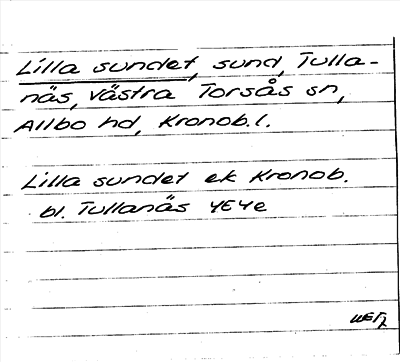 Lilla sundet, sund, Tulla-
näs, Västra Torsås sn,
Allbo hd, Kronob.l.
Lilla sundet ek Kronob.
bl. Tullanäs 4E4e